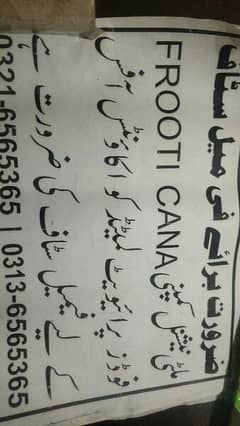 ضرورت برائے فی میل سٹاف
ملٹی نیشنل کمپنی FROOTI CANA
فوڈز پرائیویٹ لمیٹڈ کو اکاؤنٹس آفس
کے لیے فیمیل سٹاف کی ضرورت ہے
0321-6565365 | 0313-6565365